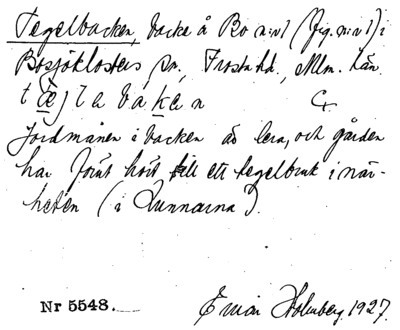 Tegelbacken, backe å Bo n:r 1 (Jfg. n:r 1) i
Bosjöklosters sn., Frosta hd., Mlm. län
tæjlabakan
Jordmånen i backen är lera, och gården
har förut hört till ett tegelbruk i när-
heten (i Lunnarna).
Nr 5548.
Einar Holmberg 1927.